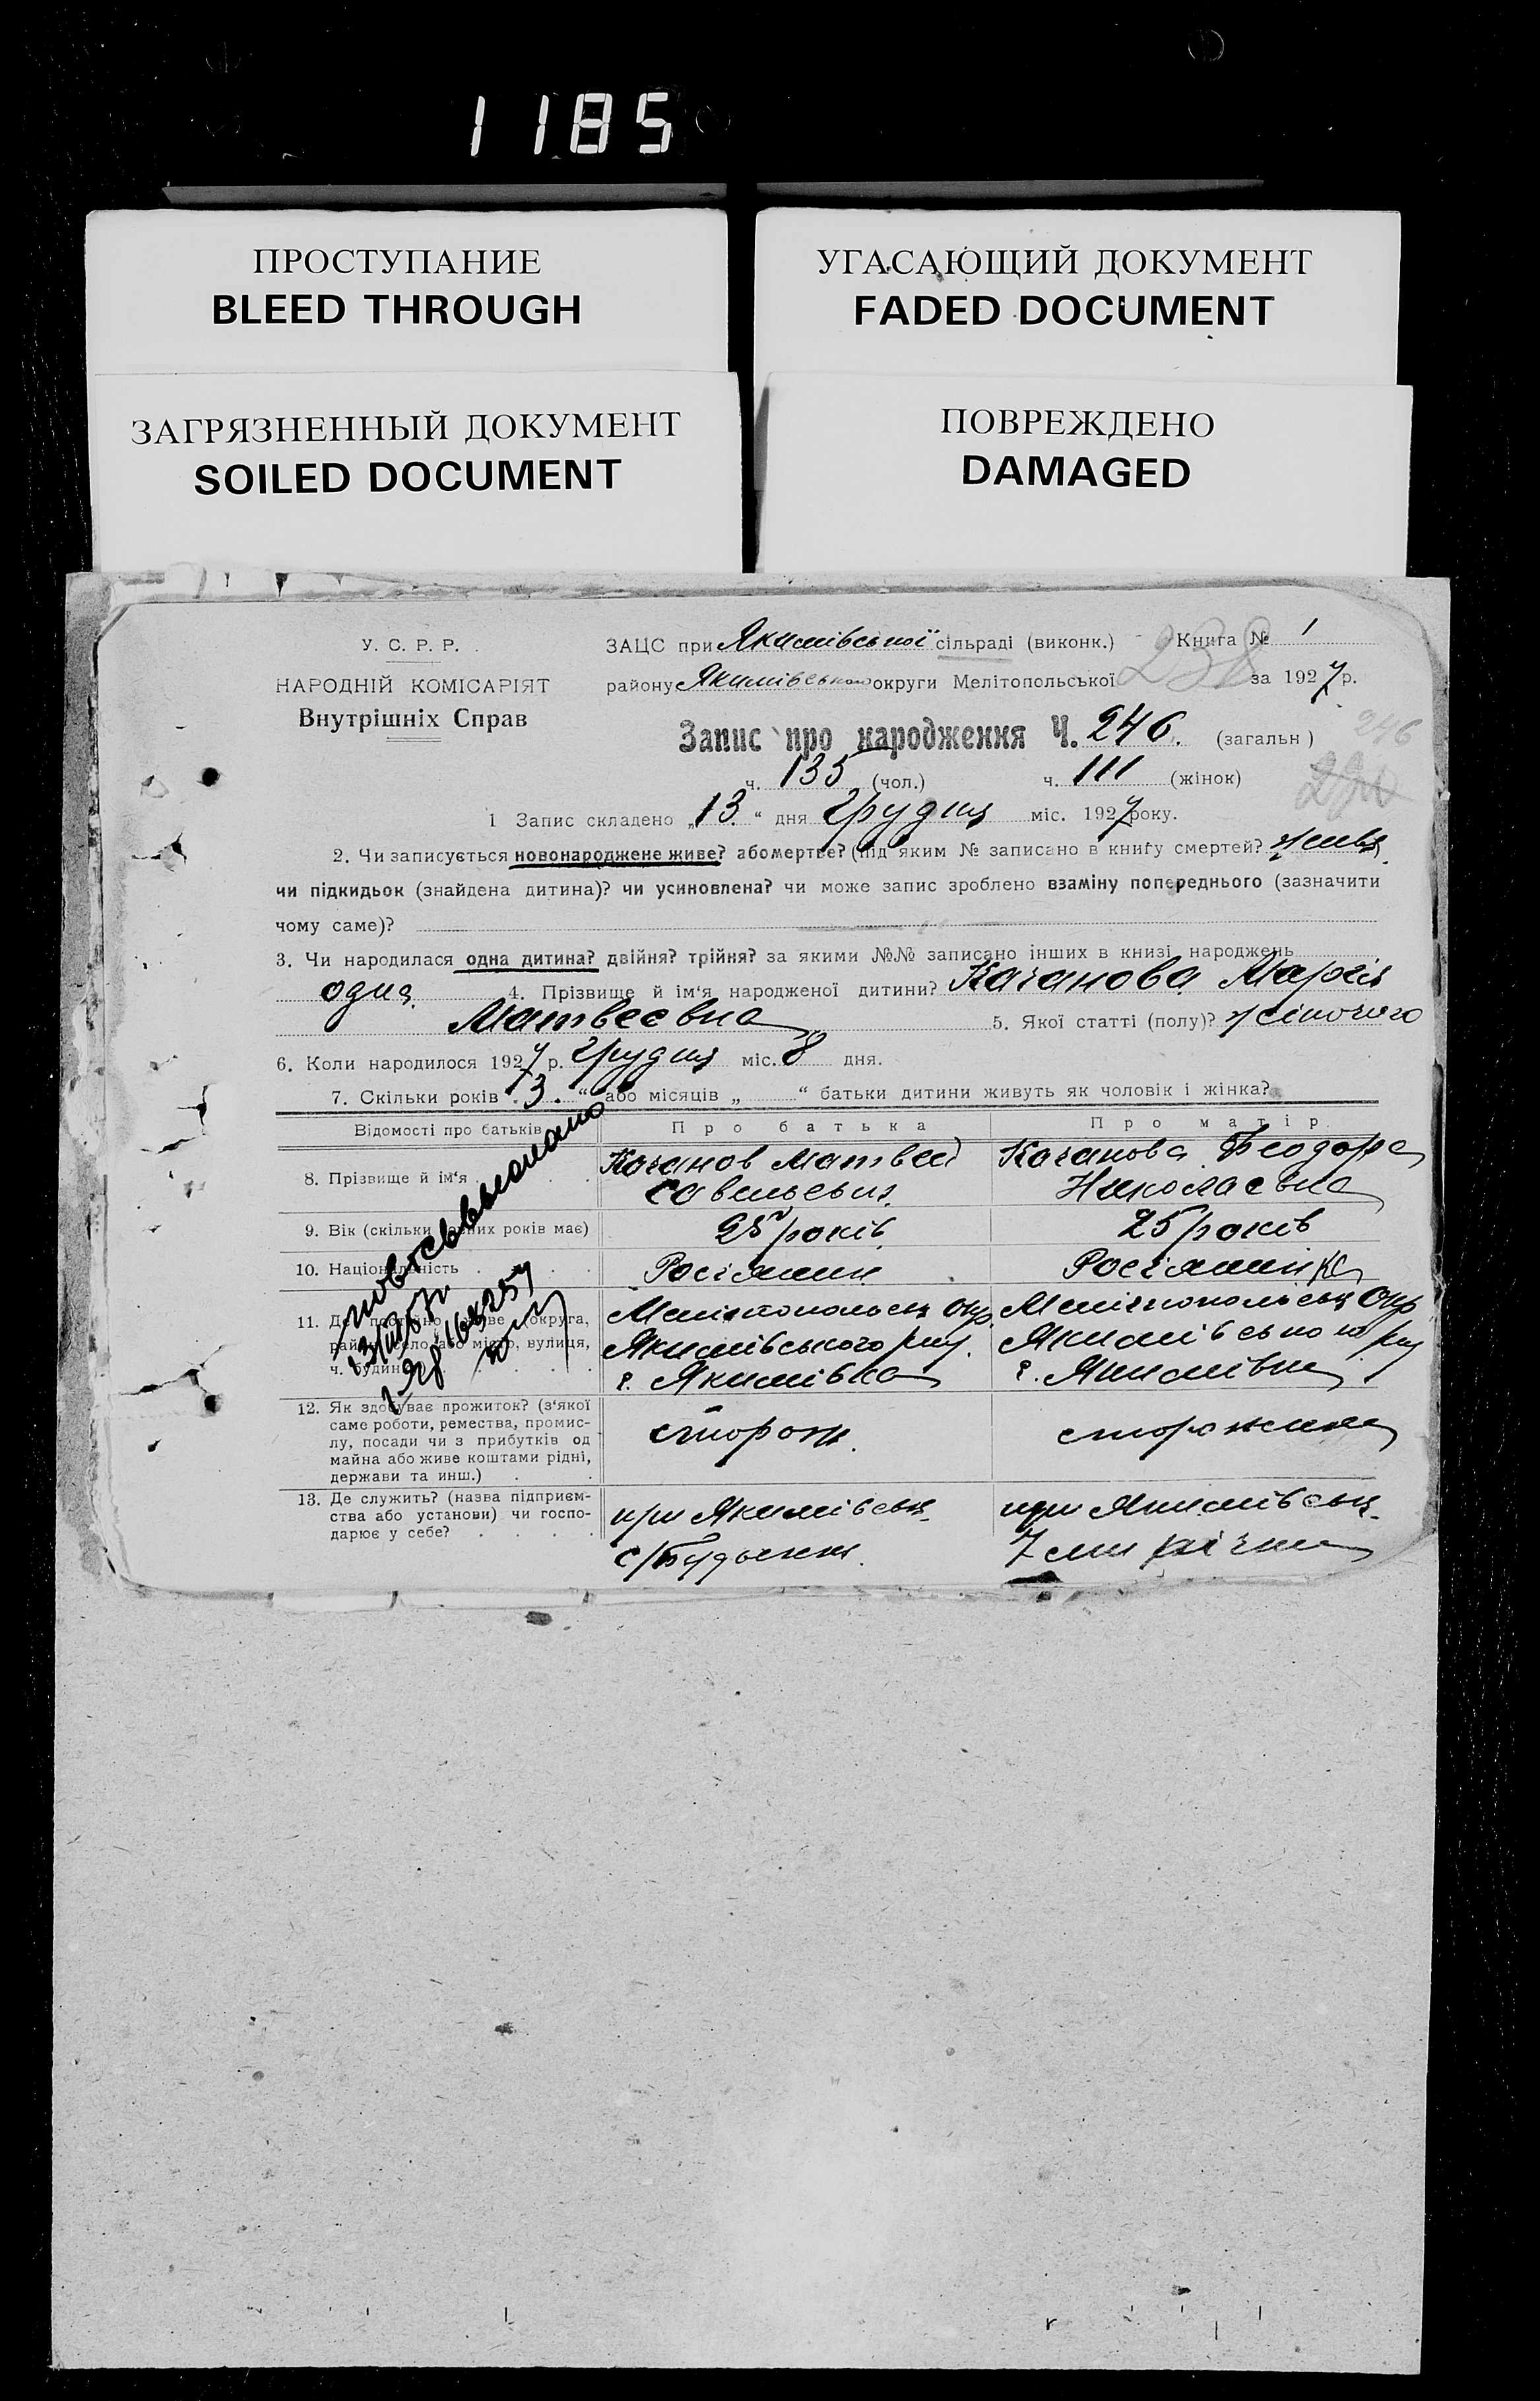 1185
ПРОСТУПАНИЕ
BLEED THROUGH
УГАСАЮЩИЙ ДОКУМЕНТ
FADED DOCUMENT
ЗАГРЯЗНЕННЫЙ ДОКУМЕНТ
SOILED DOCUMENT
ПОВРЕЖДЕНО
DAMAGED
У. С. Р. Р.
НАРОДНІЙ КОМІСАРІЯТ
Внутрішніх Справ
ЗАЦС при Якимівської сільраді (виконк.) Книга № 1
238
району Якимівського округи Мелітопольської за 1927 р.
Запис про народження Ч. 246. (загальн)
246
ч. 135 (чол.) ч. 111 (жінок)
1 Запис складено „13.“ дня Грудня міс. 1927 року.
2. Чи записується новонароджене живе? або мертве? (під яким № записано в книгу смертей? живе)
чи підкидьок (знайдена дитина)? чи усиновлена? чи може запис зроблено взаміну попереднього (зазначити
чому саме)?
3. Чи народилася одна дитина? двійня? трійня? за якими №№ записано інших в книзі народжень
одна. 4. Прізвище й ім'я народженої дитини? Качанова Марія
Матвеевна 5. Якої статті (полу)? жіночого
6. Коли народилося 1927 р. Грудня міс. 8 дня.
7. Скільки років „3.“ або місяців „ “ батьки дитини живуть як чоловік і жінка?
Відомості про батьків
Про батька
Про матір
8. Прізвище й ім'я
Качанов Матвей
Савельевич.
Качанова Феодора
Николаевна
9. Вік (скільки повних років має)
25 років.
25 років
10. Національність
Росіянин
Росіянинка
11. Де постійно живе (округа,
район, село або місто, вулиця,
ч. будинку)
Мелітопольськ Окр.
Якимівського рну.
с. Якимівка
Мелітопольськ Окр.
Якимівського рну
с. Якимівка
12. Як здобуває прожиток? (з'якої
саме роботи, ремества, промис-
лу, посади чи з прибутків од
майна або живе коштами рідні,
держави та инш.)
сторож.
сторожиха
13. Де служить? (назва підприєм-
ства або установи) чи госпо-
дарює у себе?
при Якимівськ.
с/Будынке.
при Якимівськ.
7 ми річки